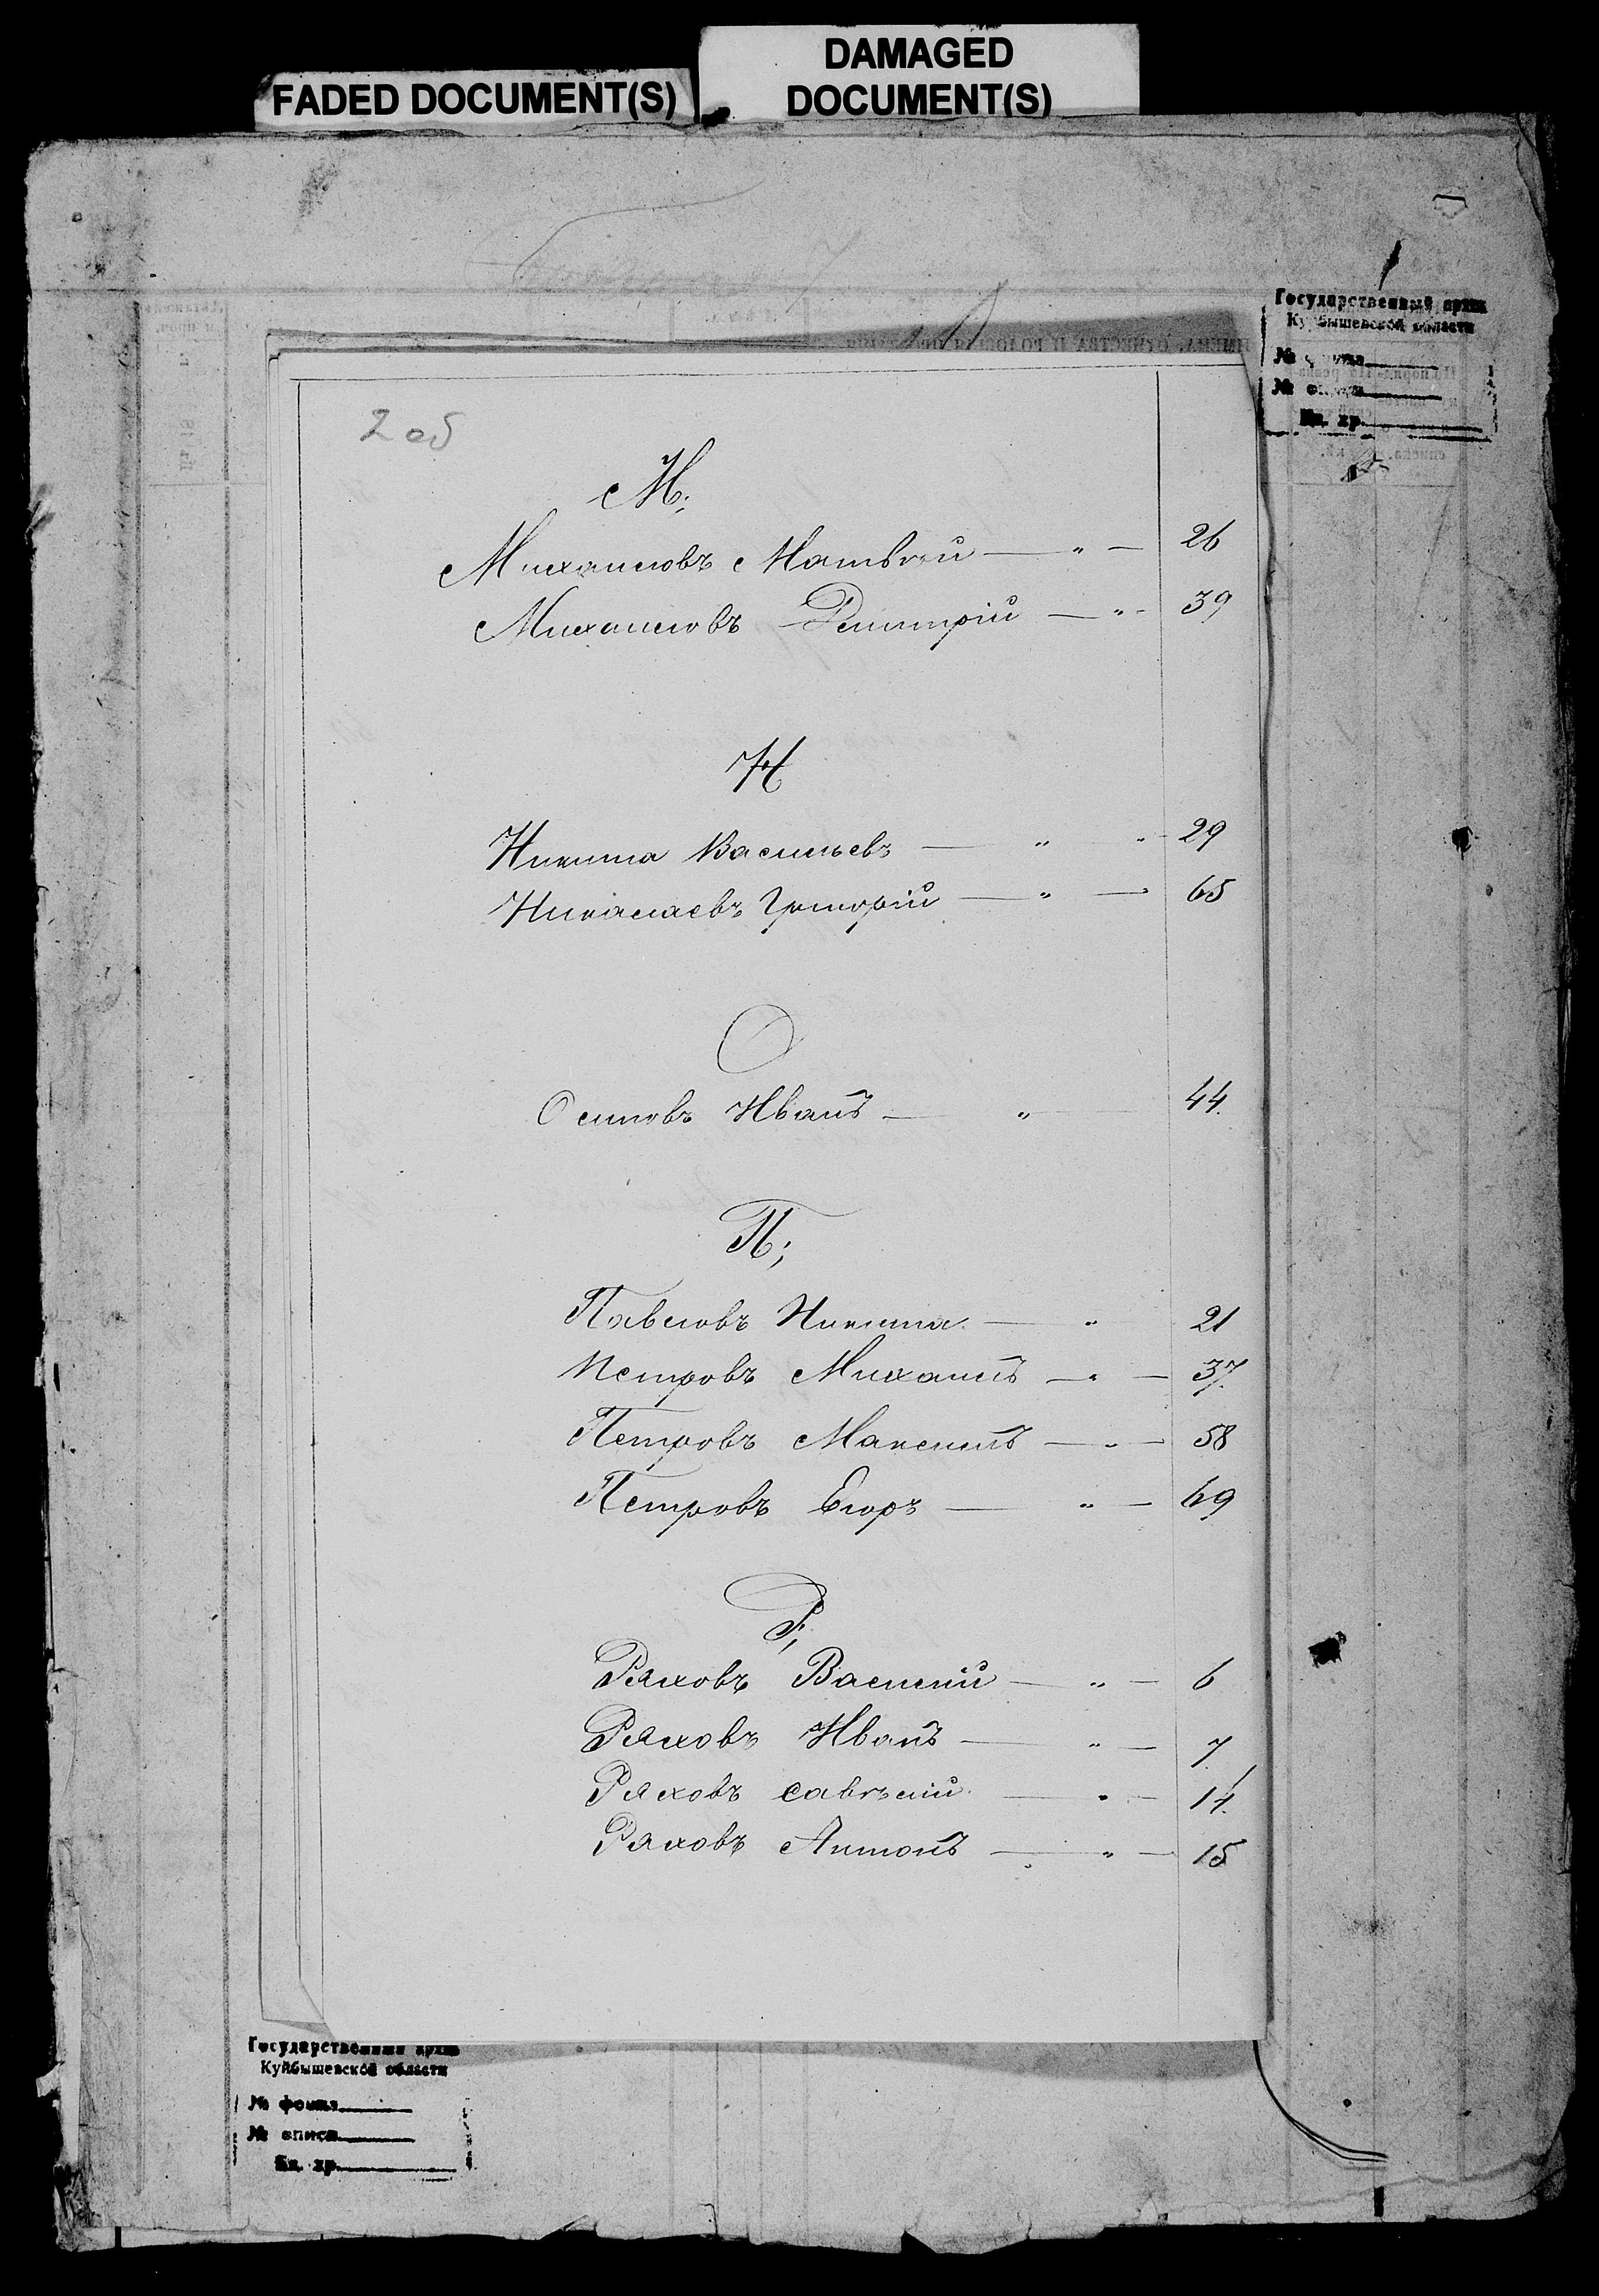 FADED DOCUMENT(S)
DAMAGED
DOCUMENT(S)
Государственный архив
Куйбышевской области
№ фонда
№ описи
Ед. хр.
2 об
М;
Михаиловъ Матвѣй — „ — 26
Михаиловъ Димитрій — „ — 39
Н
Никита Васильевъ — „ — 29
Николаевъ Григорій — „ — 65
О
Осиповъ Иванъ — „ 44.
П;
Павловъ Никита — „ 21
Петровъ Михаилъ — „ — 37.
Петровъ Максимъ — „ — 58
Петровъ Егоръ — „ — 69
Р;
Ряховъ Василий — „ — 6
Ряховъ Иванъ — „ — 7
Ряховъ Савелий — „ — 14.
Ряховъ Антонъ — „ — 15
Государственный архив
Куйбышевской области
№ фонда
№ описи
Ед. хр.